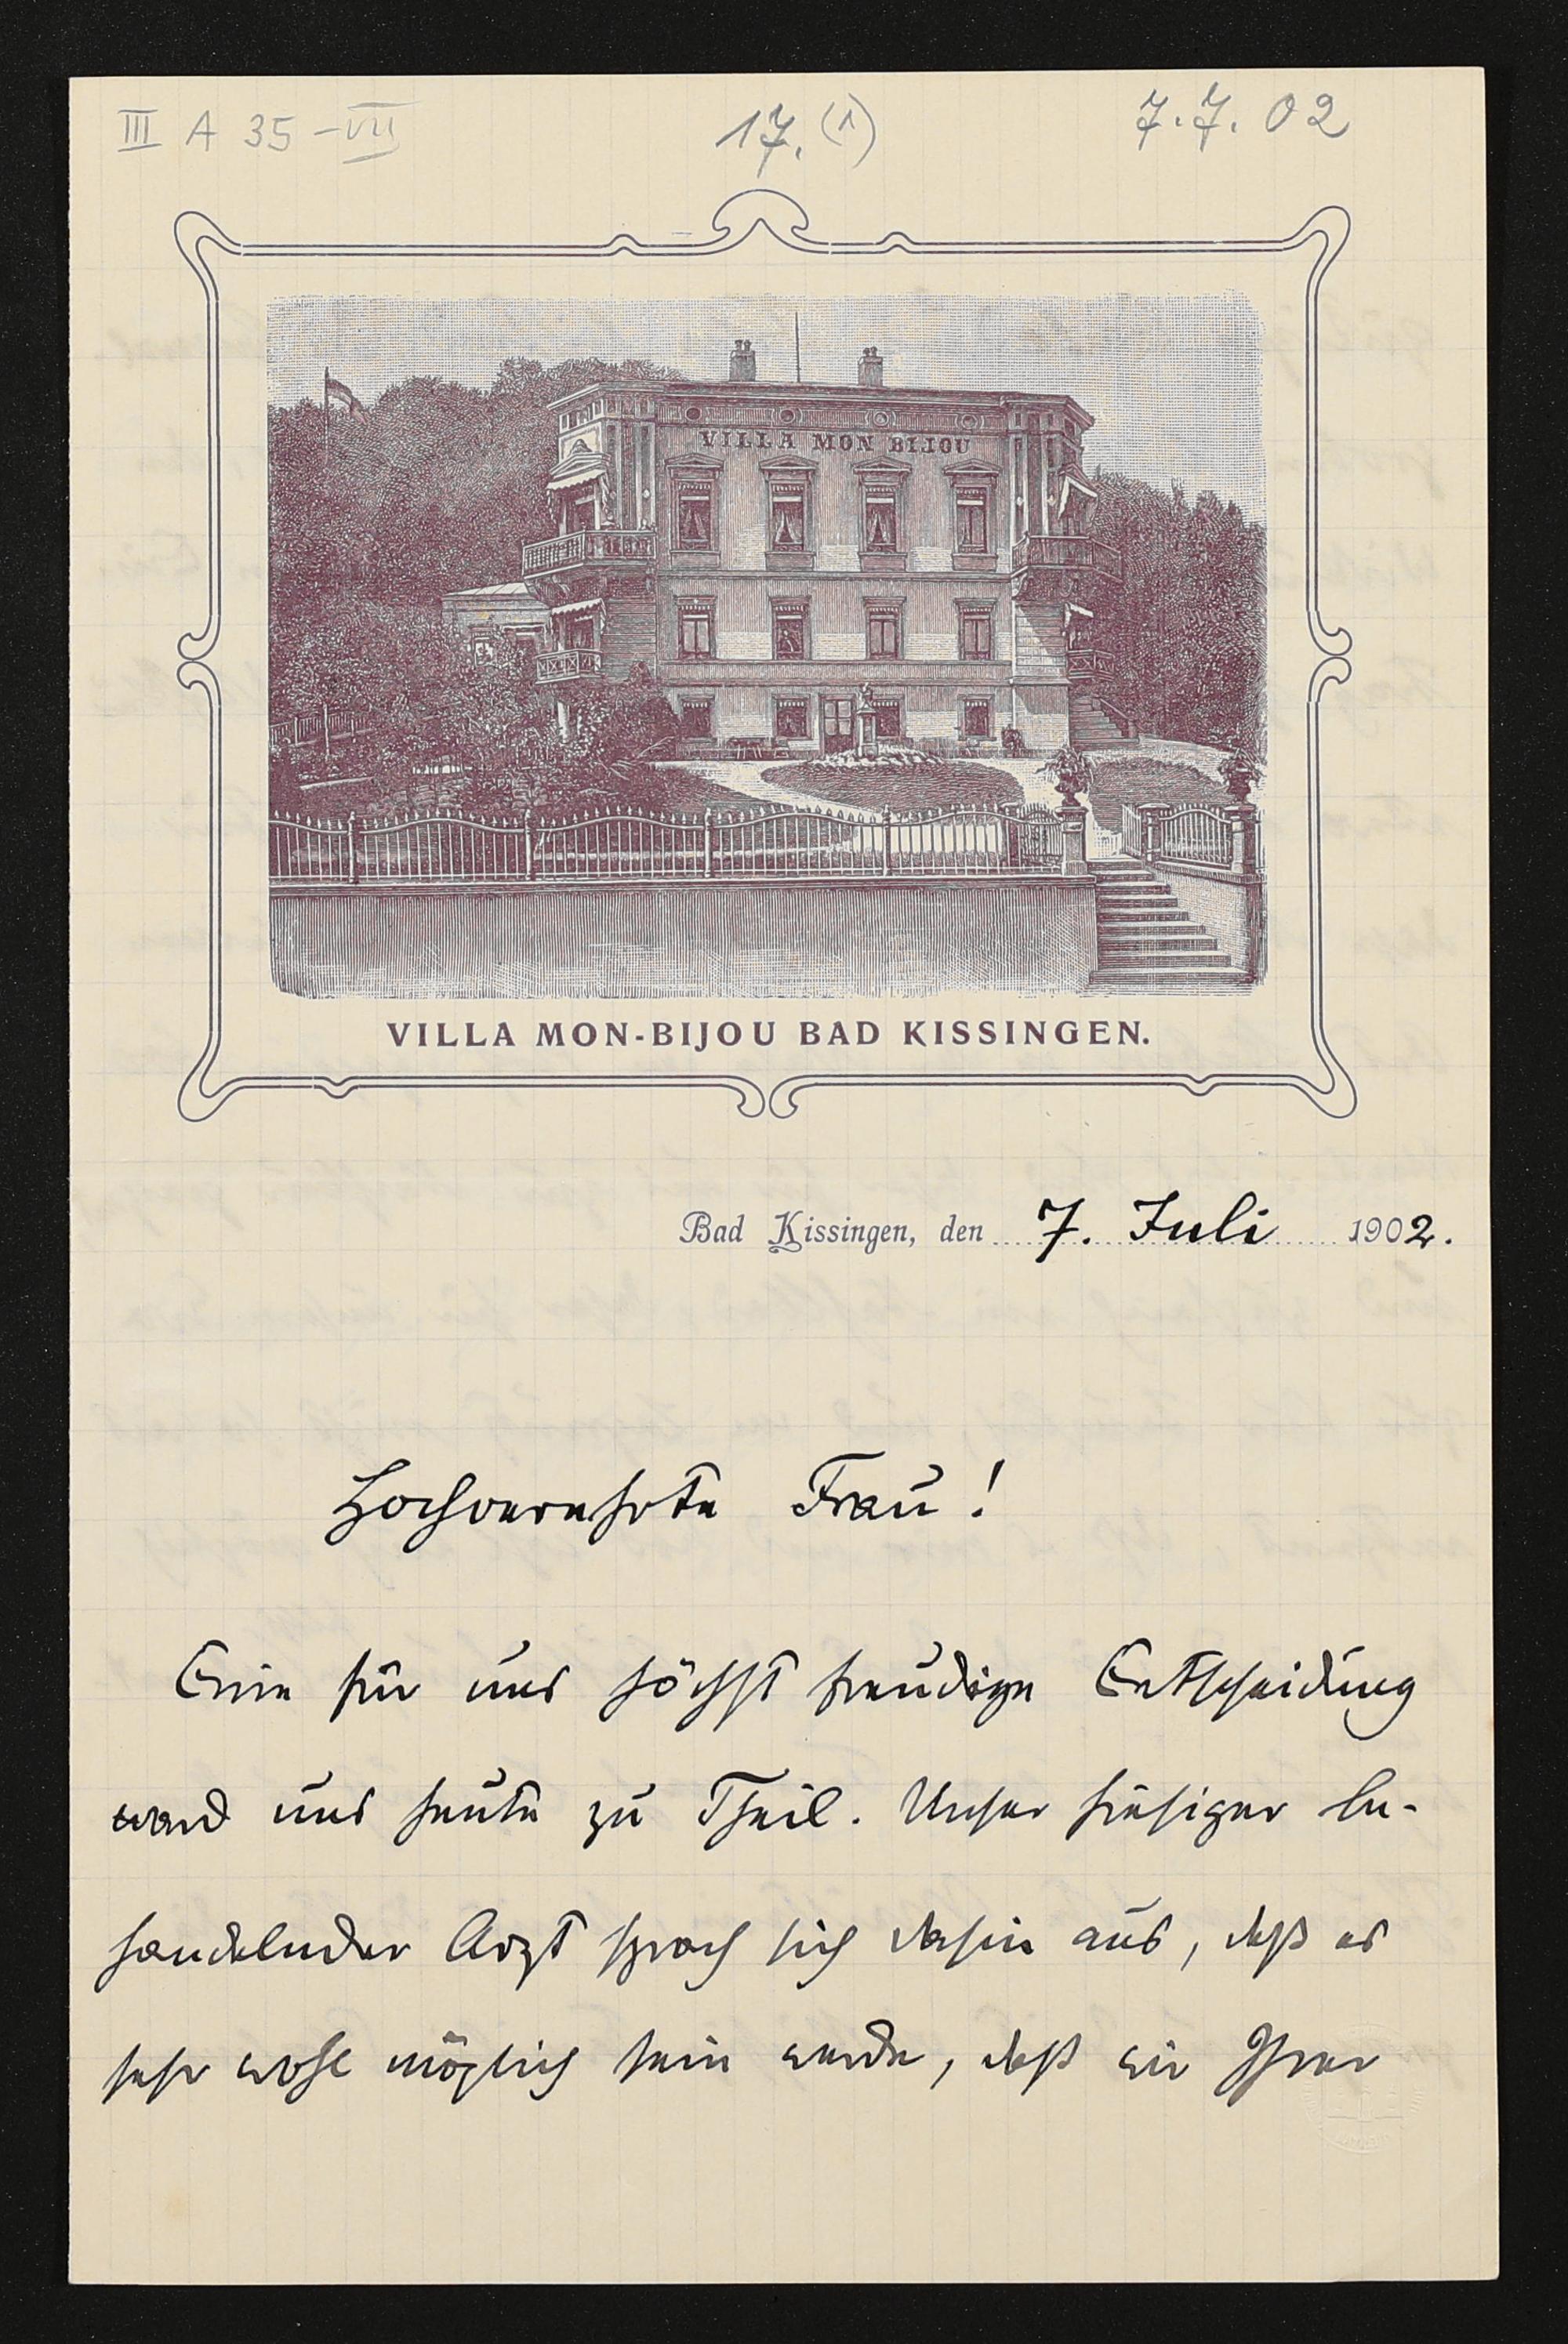 III A 35-VII 17.(1) 7.7.02
VILLA MON BIJOU
VILLA MON-BIJOU BAD KISSINGEN.
Bad Kissingen, den 7. Juli 1902.
Hochverehrte Frau!
Eine für uns höchst freudige Entscheidung
ward uns heute zu Theil. Unser hiesiger be-
handelnder Arzt sprach sich dahin aus, daß es
sehr wohl möglich sein werde, daß wir Ihrer